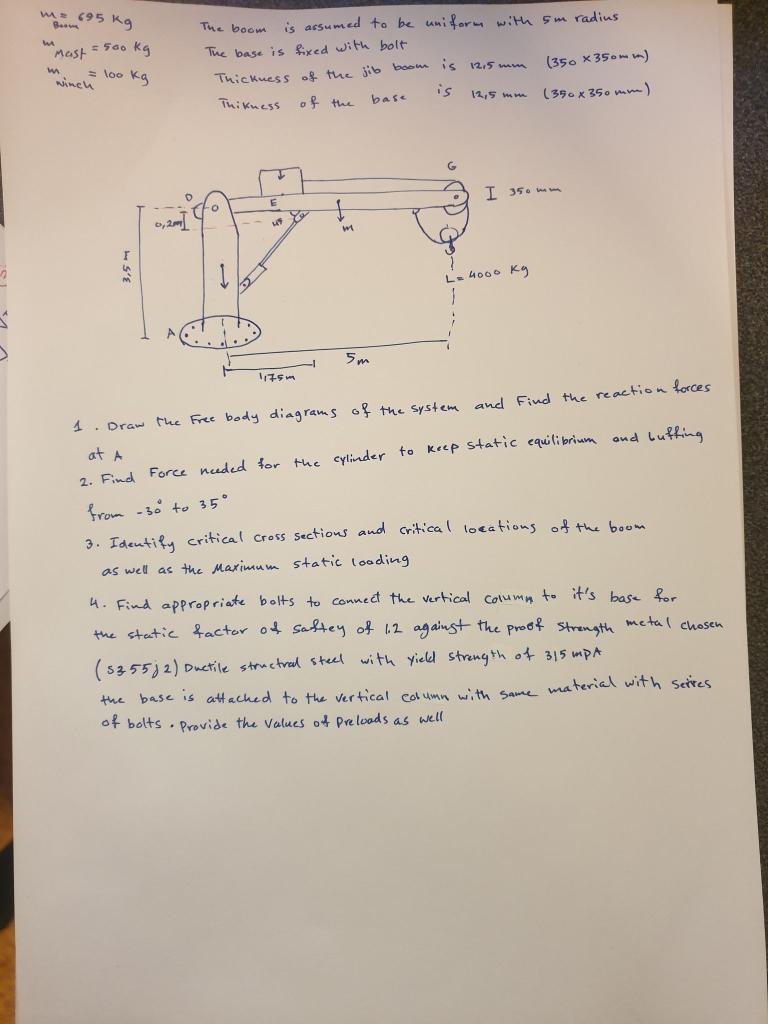 m = 695 Kg
Boom
The boom is assumed to be uniform with 5m radius
m = 500 Kg
Mast
The base is fixed with bolt
m = 100 Kg
winch
Thickness of the jib boom is 12,5 mm (350 x 350 mm)
Thikness of the base is 12,5 mm (350 x 350 mm)
G
D
E
I 350 mm
0,2m
45
m
3,5 m
L = 4000 Kg
A
5m
1,75m
1. Draw the Free body diagrams of the system and Find the reaction forces
at A
2. Find Force needed for the cylinder to keep static equilibrium and luffing
from -30° to 35°
3. Identify critical cross sections and critical locations of the boom
as well as the Maximum static loading
4. Find appropriate bolts to connect the vertical column to it's base for
the static factor of saftey of 1.2 against the proof strength metal chosen
(S355j2) Ductile structral steel with yield strength of 315 mpA
the base is attached to the vertical column with same material with seires
of bolts. Provide the values of Preloads as well